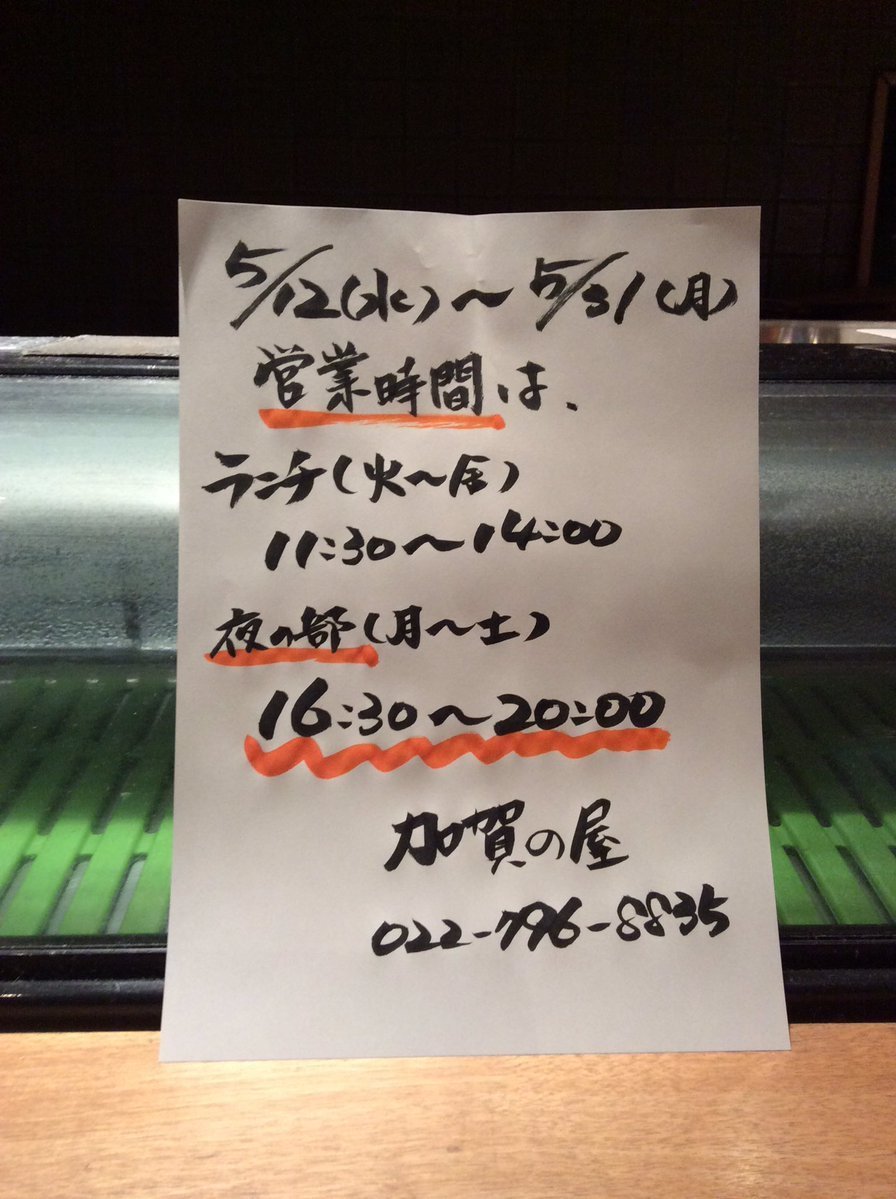 5/12(水)〜5/31(月)
営業時間は、
ランチ(火〜金)
11:30〜14:00
夜の部(月〜土)
16:30〜20:00
加賀の屋
022-796-8835